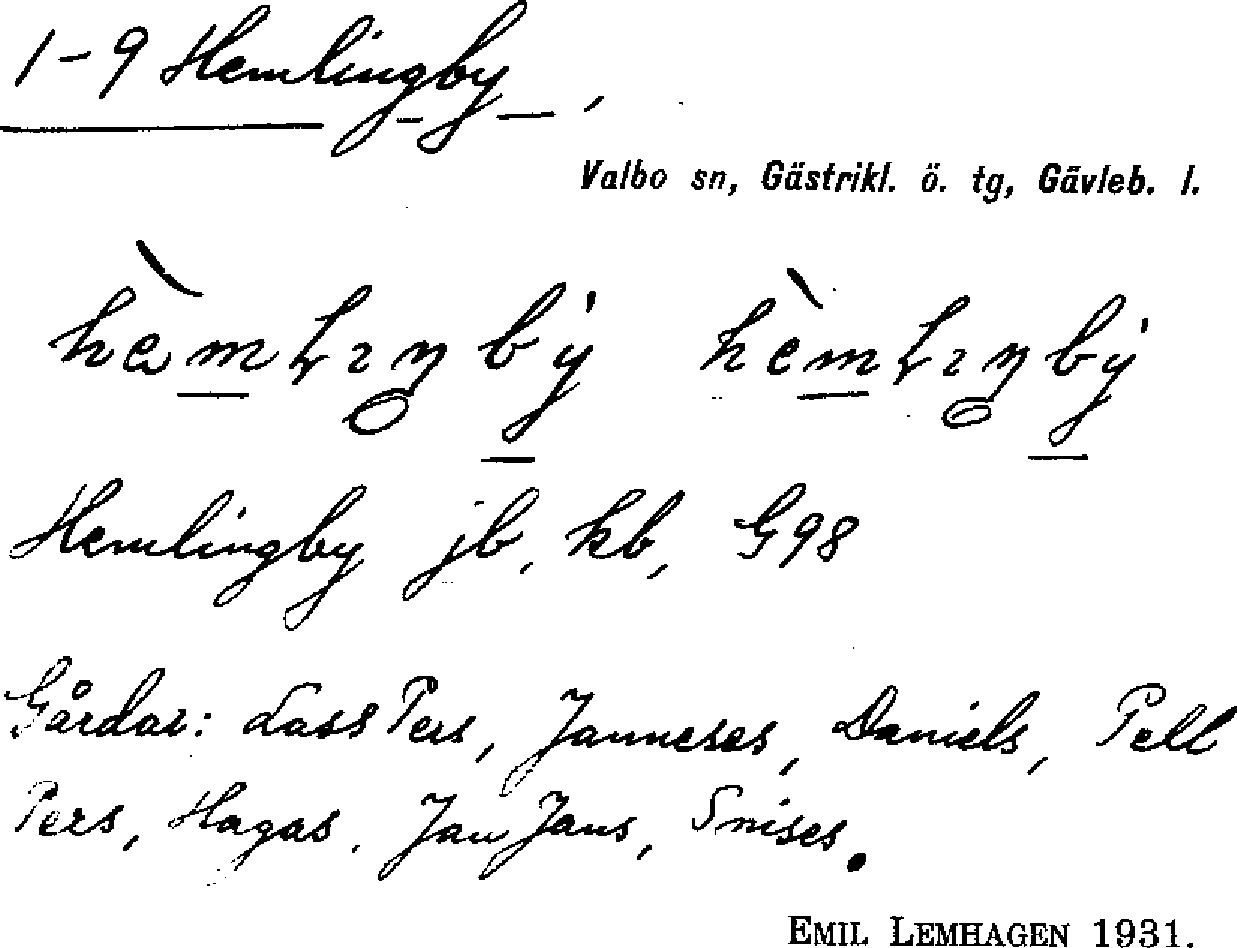 1-9 Hemlingby,
Valbo sn, Gästrikl. ö. tg, Gävleb. l.
Hemlingby jb, kb, G98
Gårdar: Lass Pers, Janneses, Daniels, Pell
Pers, Hagas, Jan Jans, Snises.
EMIL LEMHAGEN 1931.